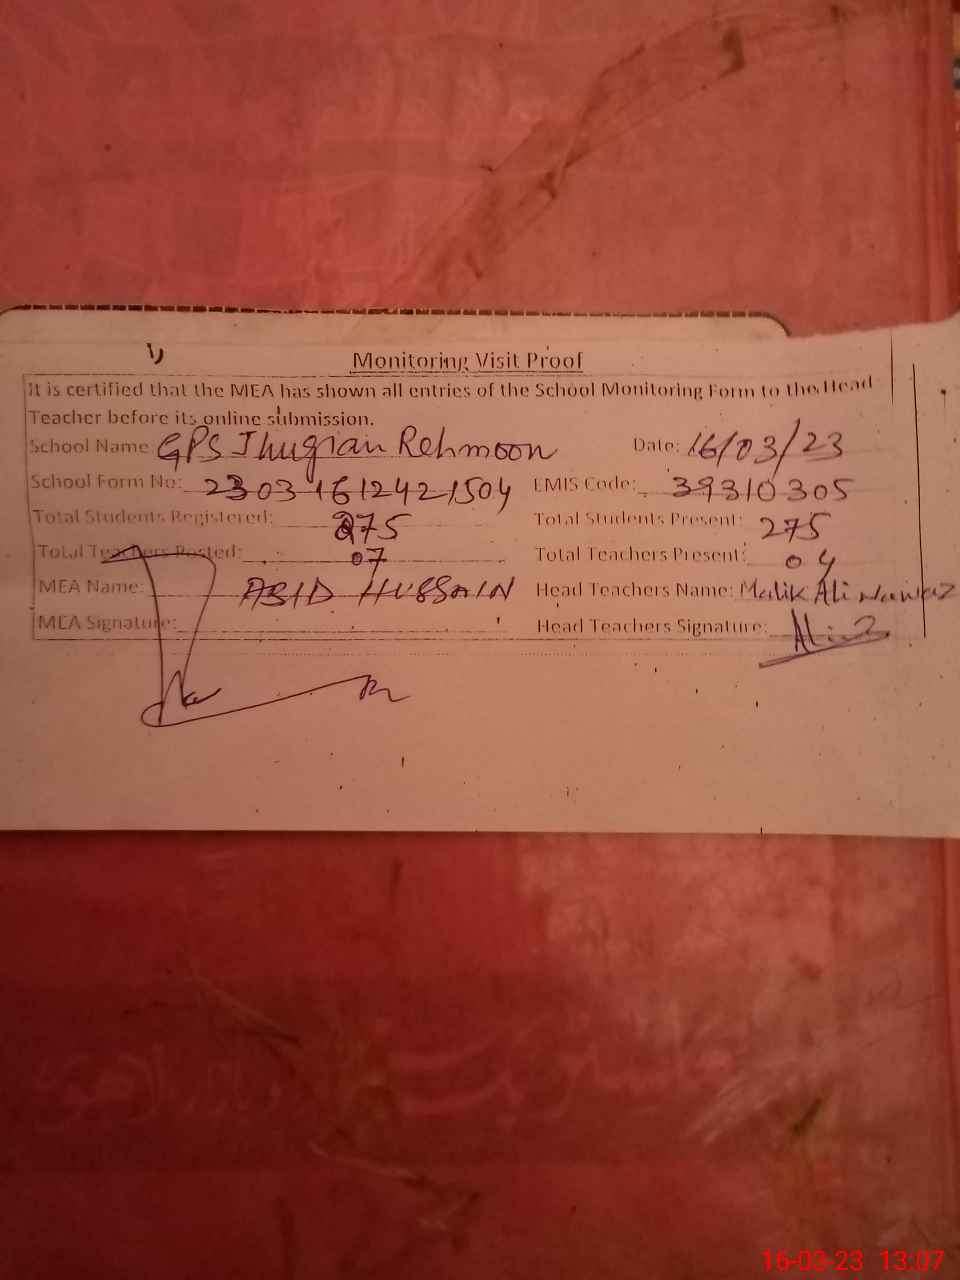 Monitoring Visit Proof
It is certified that the MEA has shown all entries of the School Monitoring Form to the Head
Teacher before its online submission.
School Name: GPS Jhugian Rehmoon Date: 16/03/23
School Form No: 23031612421504 EMIS Code: 39310305
Total Students Registered: 275 Total Students Present: 275
Total Teachers Posted: 07 Total Teachers Present: 04
MEA Name: ABID HUSSAIN Head Teachers Name: Malik Ali Nawaz
MEA Signature: Head Teachers Signature:
16-03-23 13:07